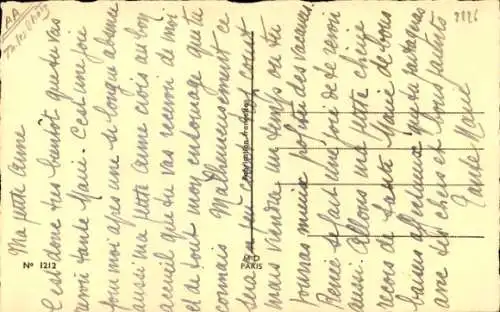 Ma petite Anne
C'est donc très bientôt que tu vas
revoir tante Marie. C'est une joie
pour moi après une si longue absence
aussi ma petite Anne crois au bon
accueil que tu vas recevoir de moi
et de tout mon entourage que tu
connais Malheureusement ce
sera un court
mais viendra un temps où tu
pourras mieux profiter des vacances
René se fait une joie de te revoir
aussi. Allons ma petite chérie
reçois de tante Marie de bons
baisers affectueux que tu partageras
avec tes chers et bons parents
Tante Marie
AA
2226
N° 1212
M D
PARIS